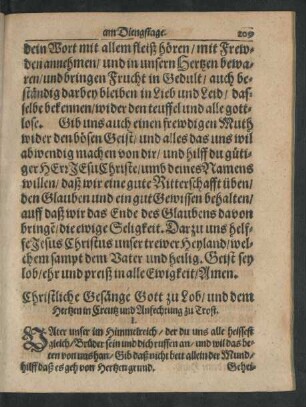 am Diengstage. 209
dein Wort mit allem fleiß hören / mit Frew-
den annehmen / und in unsern Hertzen bewa-
ren / und bringen Frucht in Gedult / auch be-
ständig darbey bleiben in Lieb und Leid / das-
selbe bekennen / wider den teuffel und alle gott-
lose. Gib uns auch einen frewdigen Muth
wider den bösen Geist / und alles das uns wil
abwendig machen von dir / und hilff du güti-
ger HErr JEsu Christe / umb deines Namens
willen / daß wir eine gute Ritterschafft üben /
den Glauben und ein gut Gewissen behalten /
auff daß wir das Ende des Glaubens davon
bringē / die ewige Seligkeit. Dar zu uns helf-
fe Jesus Christus unser trewer Heyland / wel-
chem sampt dem Vater und heilig. Geist sey
lob / ehr und preiß in alle Ewigkeit / Amen.
Christliche Gesänge Gott zu Lob / und dem
Hertzen in Creutz und Anfechtung zu Trost.
I.
VAter unser im Himmelreich / der du uns alle heissest
gleich / Brüder sein und dich ruffen an / und wil das be-
ten von uns han / Gib daß nicht bett allein der Mund /
hilff daß es geh von Hertzen grund. Gehei-